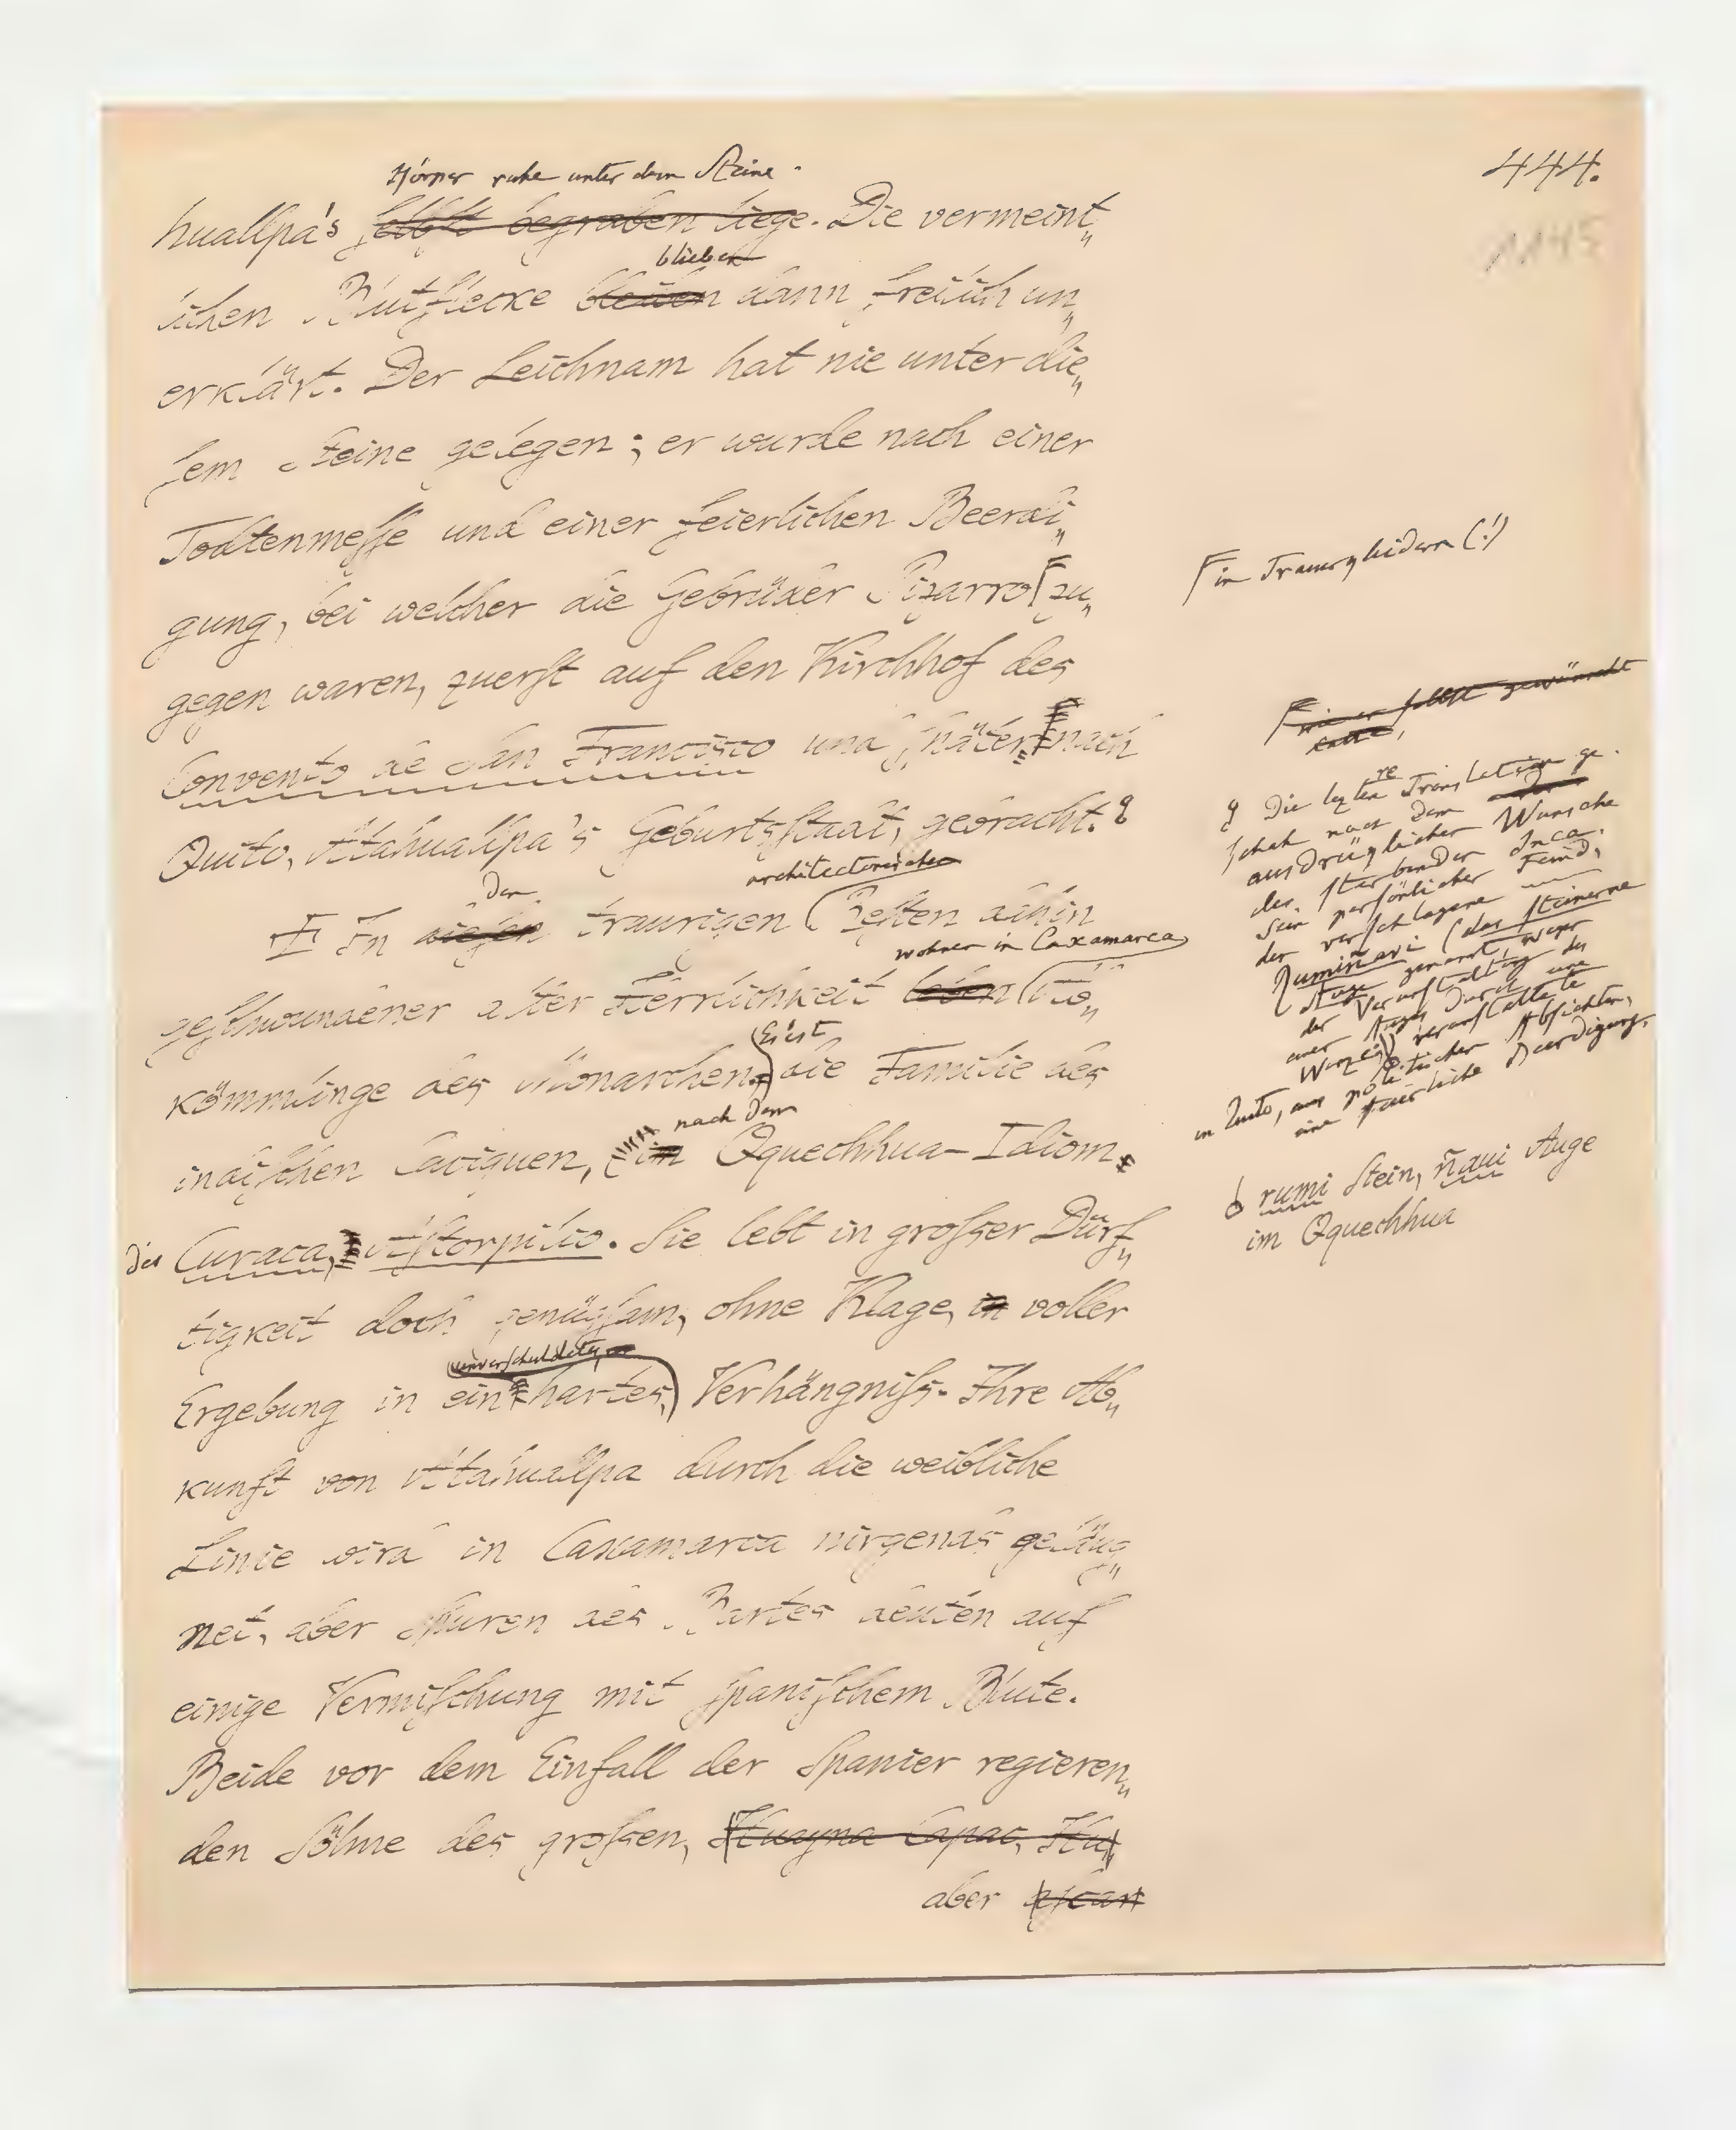 444.
1145
Körper ruhe unter dem Steine.
huallpa's selbst begraben liege. Die vermeint„
lichen Blutflecke bleiben dann freilich un„
blieben
erklärt. Der Leichnam hat nie unter die„
sem Steine gelegen; er wurde nach einer
Todtenmesse und einer feierlichen Beerdi„
gung, bei welcher die Gebrüder Pizarro zu„
gegen waren, zuerst auf den Kirchhof des
Convento de San Francisco und später nach
Quito, Atahuallpa's Geburtsstadt, gebracht.
architectonischen
In diesen traurigen Resten dahin
den
wohnen in Caxamarca
geschwundener alter Herrlichkeit leben Ab„
Es ist
kömmlinge des Monarchen, die Familie des
nach dem
indischen Caciquen, im Qquechhua-Idiom
des Curaca, Astorpilco. Sie lebt in großer Dürf„
tigkeit doch genügsam, ohne Klage, in voller
unverschuldetes
Ergebung in ein hartes, Verhängniß. Ihre Ab„
kunft von Atahuallpa durch die weibliche
Linie wird in Caxamarca nirgends geläug„
net, aber Spuren des Bartes deuten auf
einige Vermischung mit spanischem Blute.
Beide vor dem Einfall der Spanier regieren„
den Söhne des großen, Huayna Capac, Hu„
aber ascar
in Trauerkleidern (!)
wie er selbst gewünscht
hatte,
Die letztere Translation ge„
schah nach dem
ausdrüklichen Wunsche
des sterbenden Inca.
Sein persönlicher Feind,
der verschlagene
Rumiñavi (das steinerne
Auge genannt, wegen
der Verunstaltung des
einen Auges durch eine
Warze) veranstaltete
in Quito, aus politischen Absichten,
eine feierliche Beerdigung.
rumi Stein, ñaui Auge
im Qquechhua